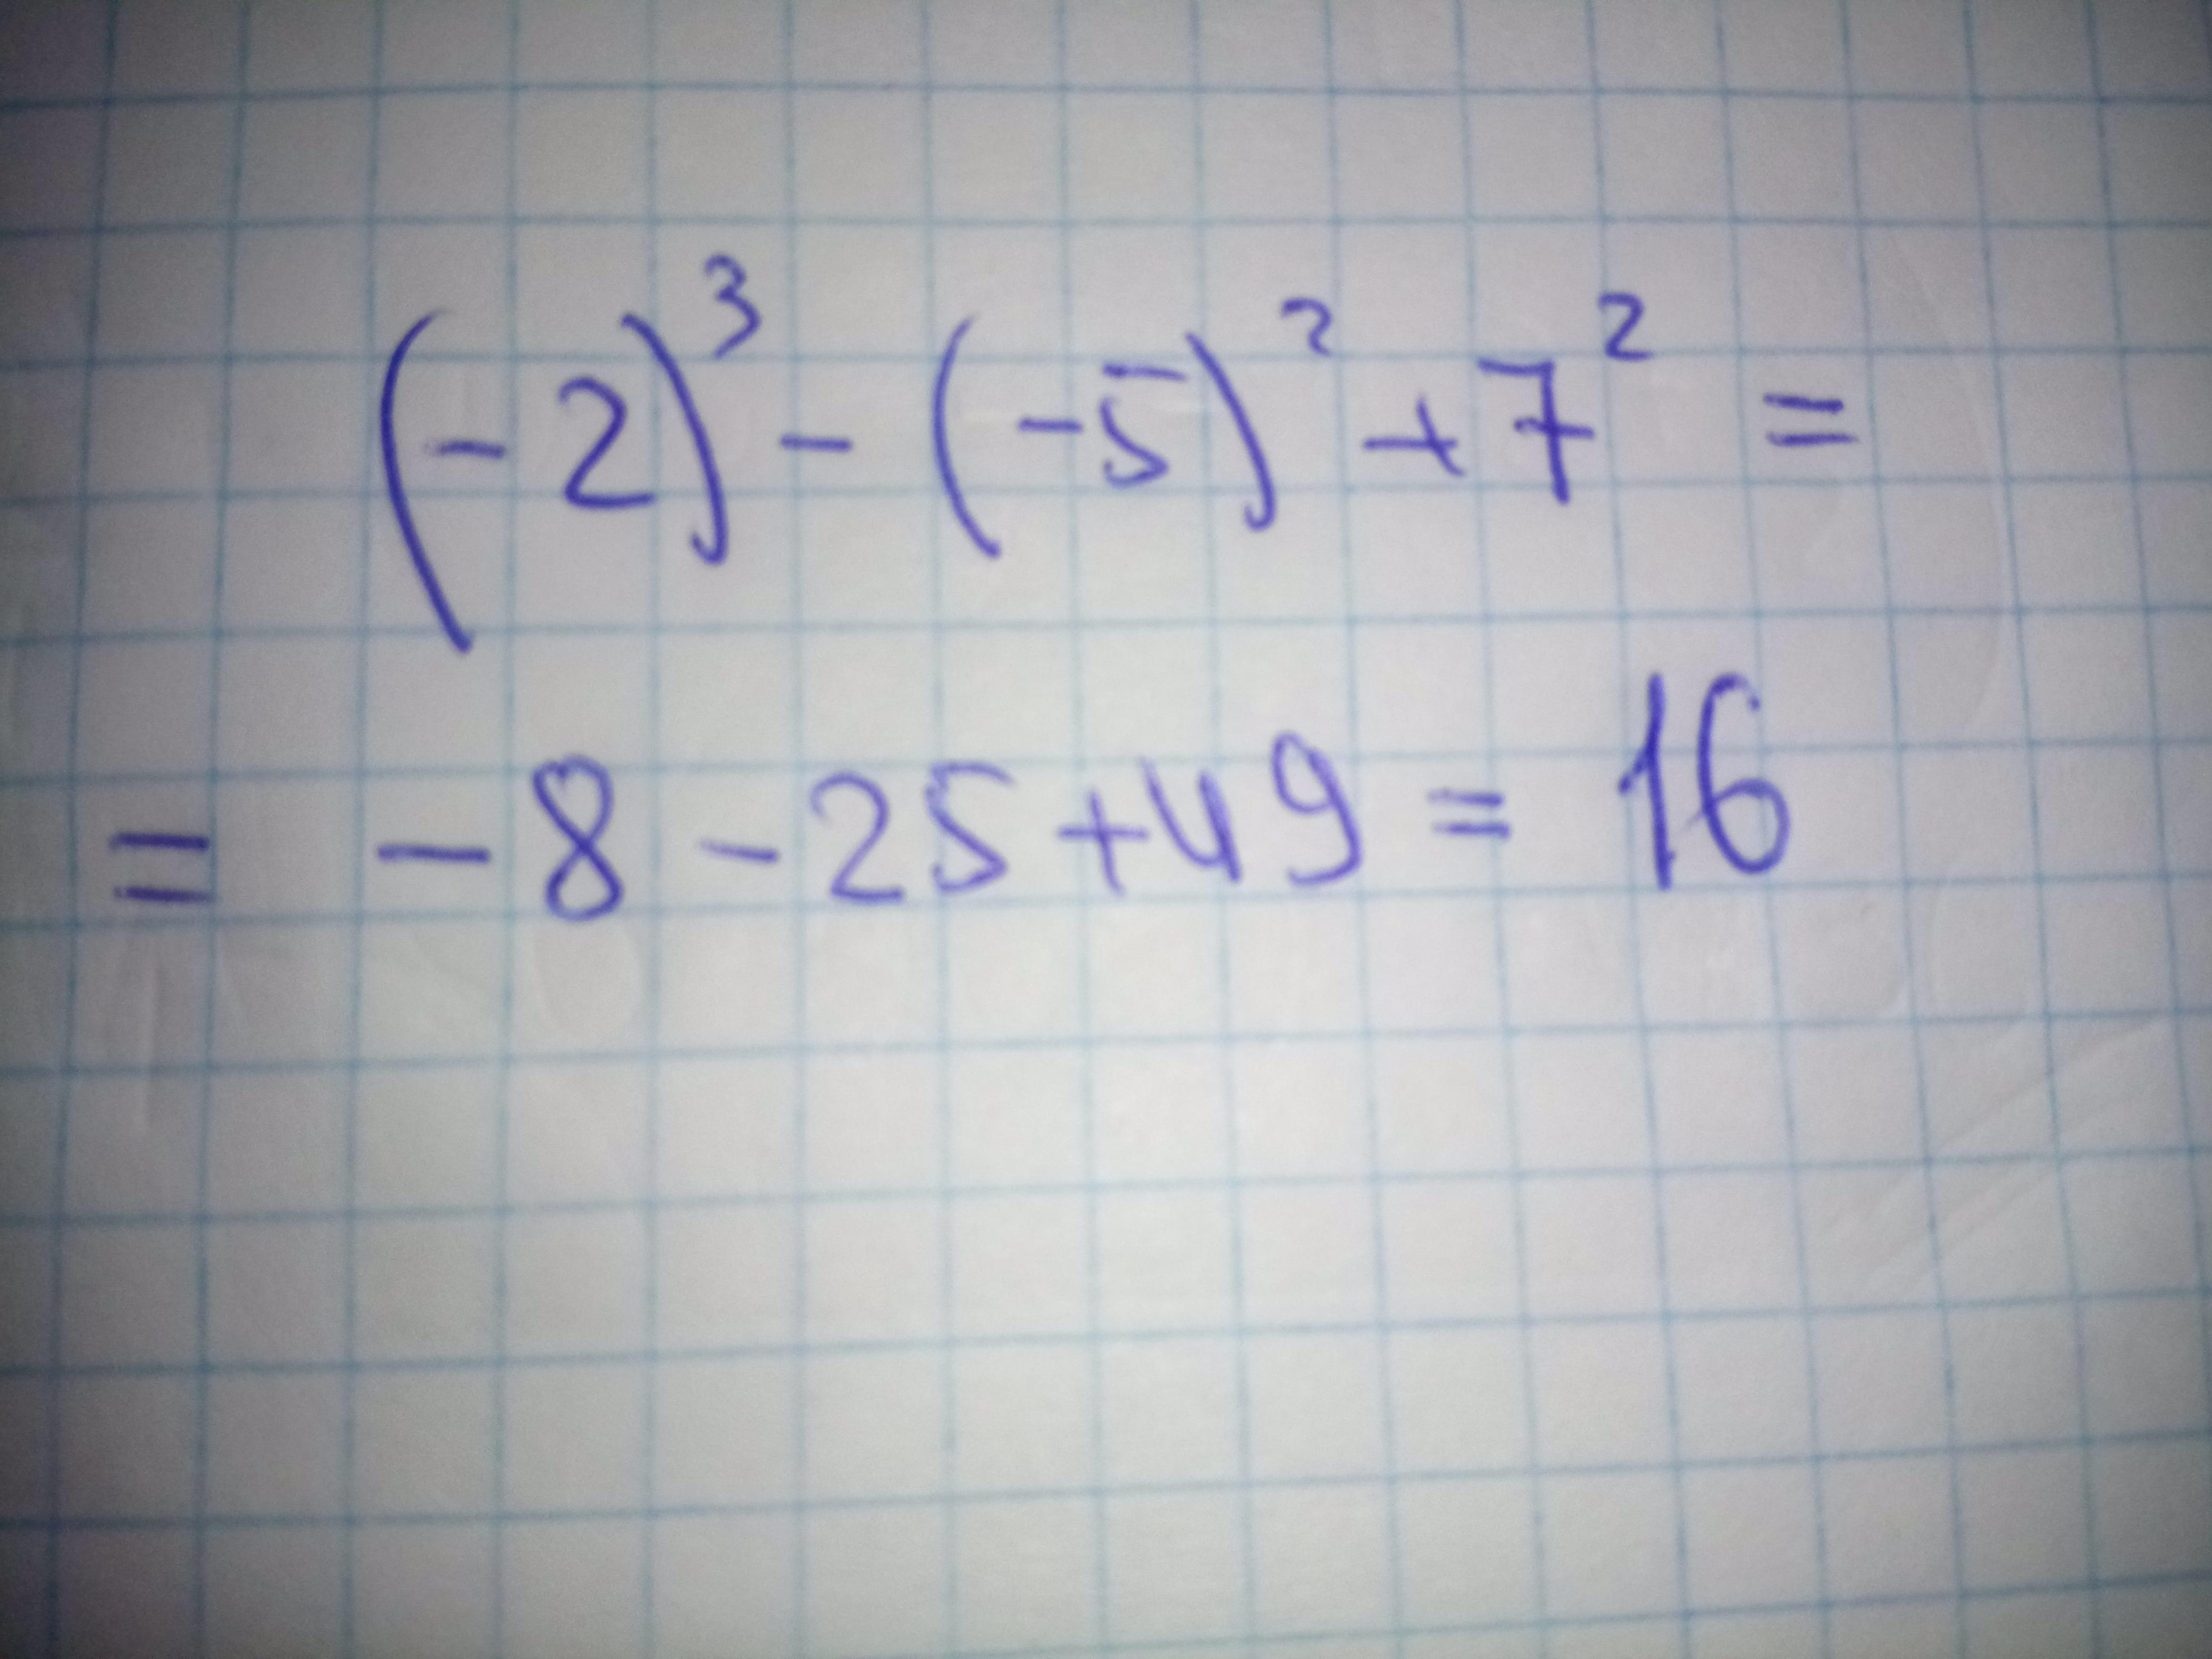 (-2)³ - (-5)² + 7² =
= - 8 - 25 + 49 = 16